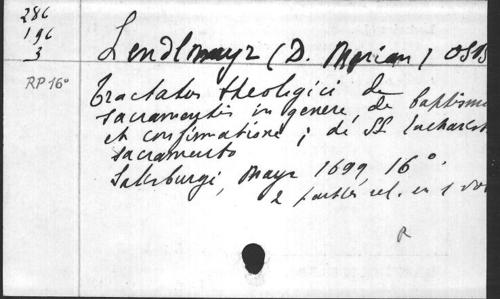 286
196
3
RP 16°
Lendlmayr (D. Marian) OSB
Tractatus theologici de
sacramentis in genere, de baptismo
et confirmatione ; de SS Eucharist
sacramento
Salisburgi, Mayr 1699, 16°.
2 parties rel. en 1 vol
R